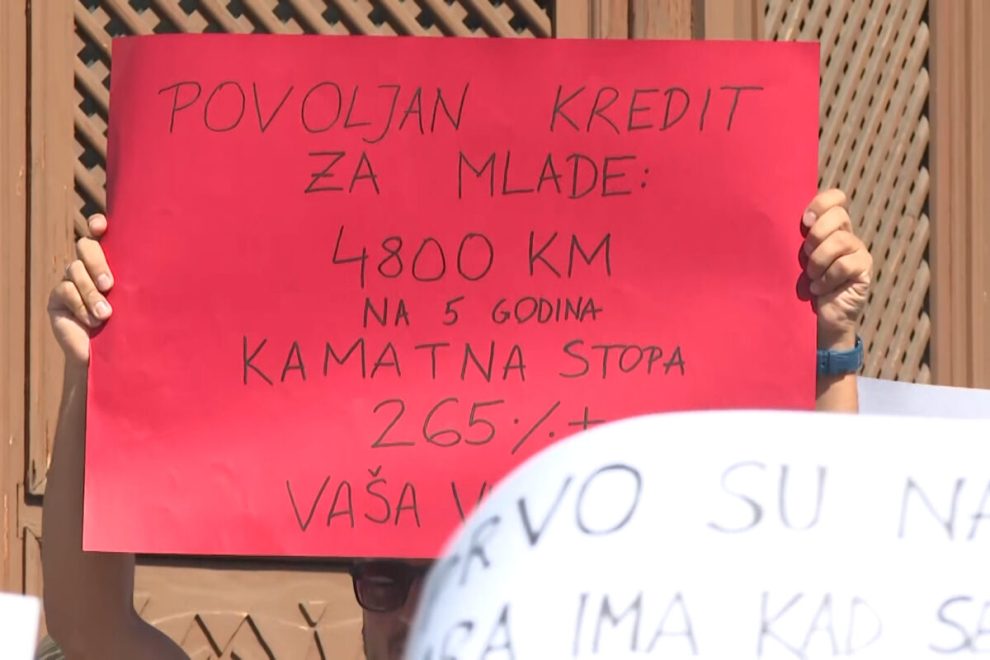 POVOLJAN KREDIT
ZA MLADE:
4800 KM
NA 5 GODINA
KAMATNA STOPA
265·/.+
VAŠA
PRVO SU
IMA KAD